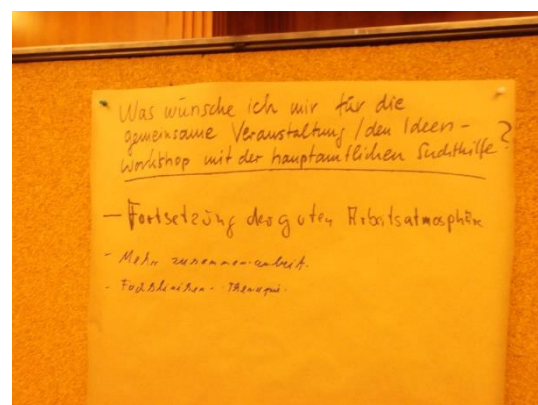 Was wünsche ich mir für die
gemeinsame Veranstaltung / den Ideen-
workshop mit der hauptamtlichen Suchthilfe?
- Fortsetzung der guten Arbeitsatmosphäre
- Mehr zusammenarbeit.
- Fachkliniken - Therapie.